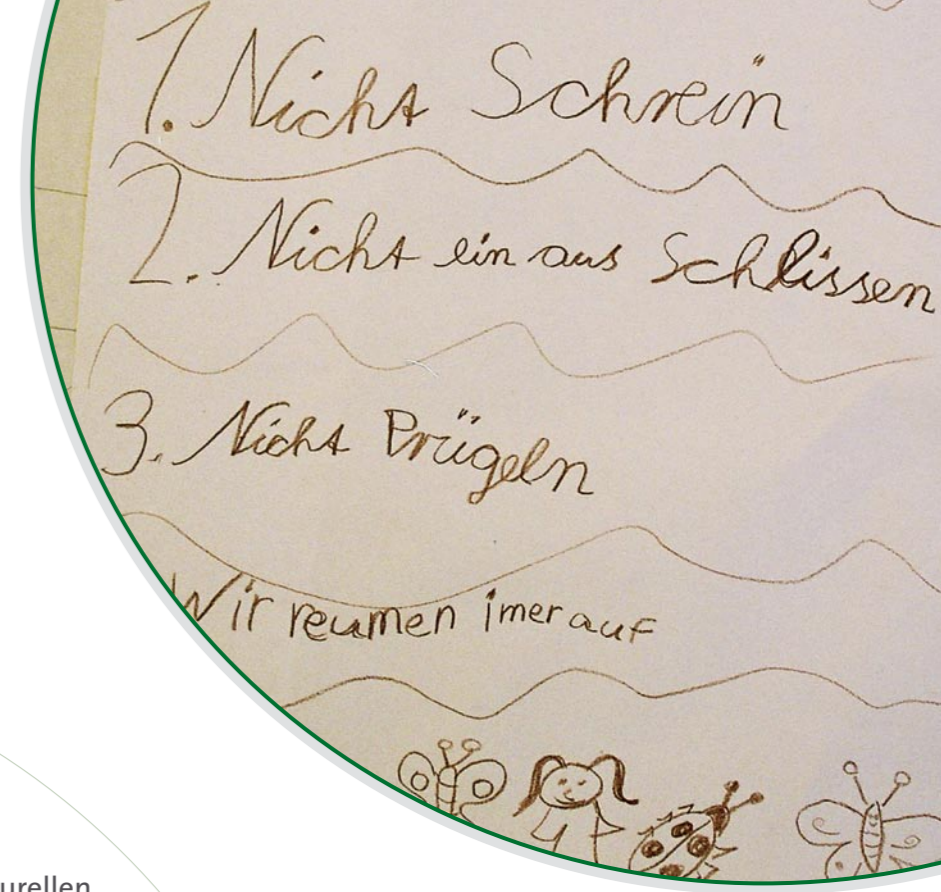 1. Nicht Schrein
2. Nicht ein aus Schlissen
3. Nicht Prügeln
Wir reumen imer auf
urellen